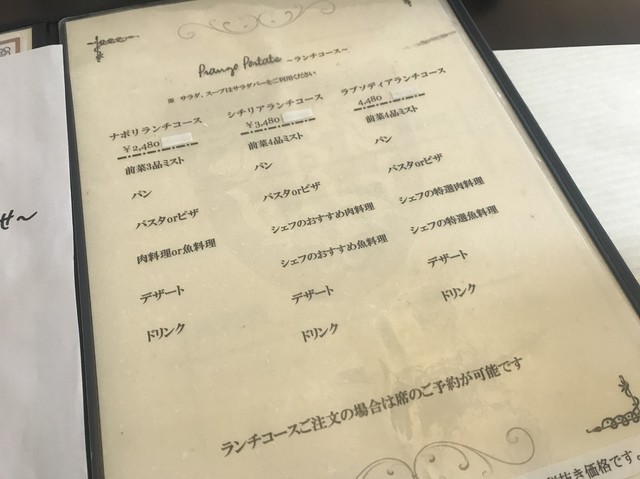 Pranzo Portata ～ランチコース～
※ サラダ、スープはサラダバーをご利用ください
ナポリランチコース
￥2,480
前菜3品ミスト
パン
パスタorピザ
肉料理or魚料理
デザート
ドリンク
シチリアランチコース
￥3,480
前菜4品ミスト
パン
パスタorピザ
シェフのおすすめ肉料理
シェフのおすすめ魚料理
デザート
ドリンク
ラプソディアランチコース
4,480
前菜4品ミスト
パン
パスタorピザ
シェフの特選肉料理
シェフの特選魚料理
デザート
ドリンク
ランチコースご注文の場合は席のご予約が可能です
抜き価格です。
せ～